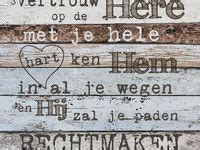 vertrouw
op de Here
met je hele
hart ken Hem
in al je wegen
en Hij zal je paden
RECHTMAKEN